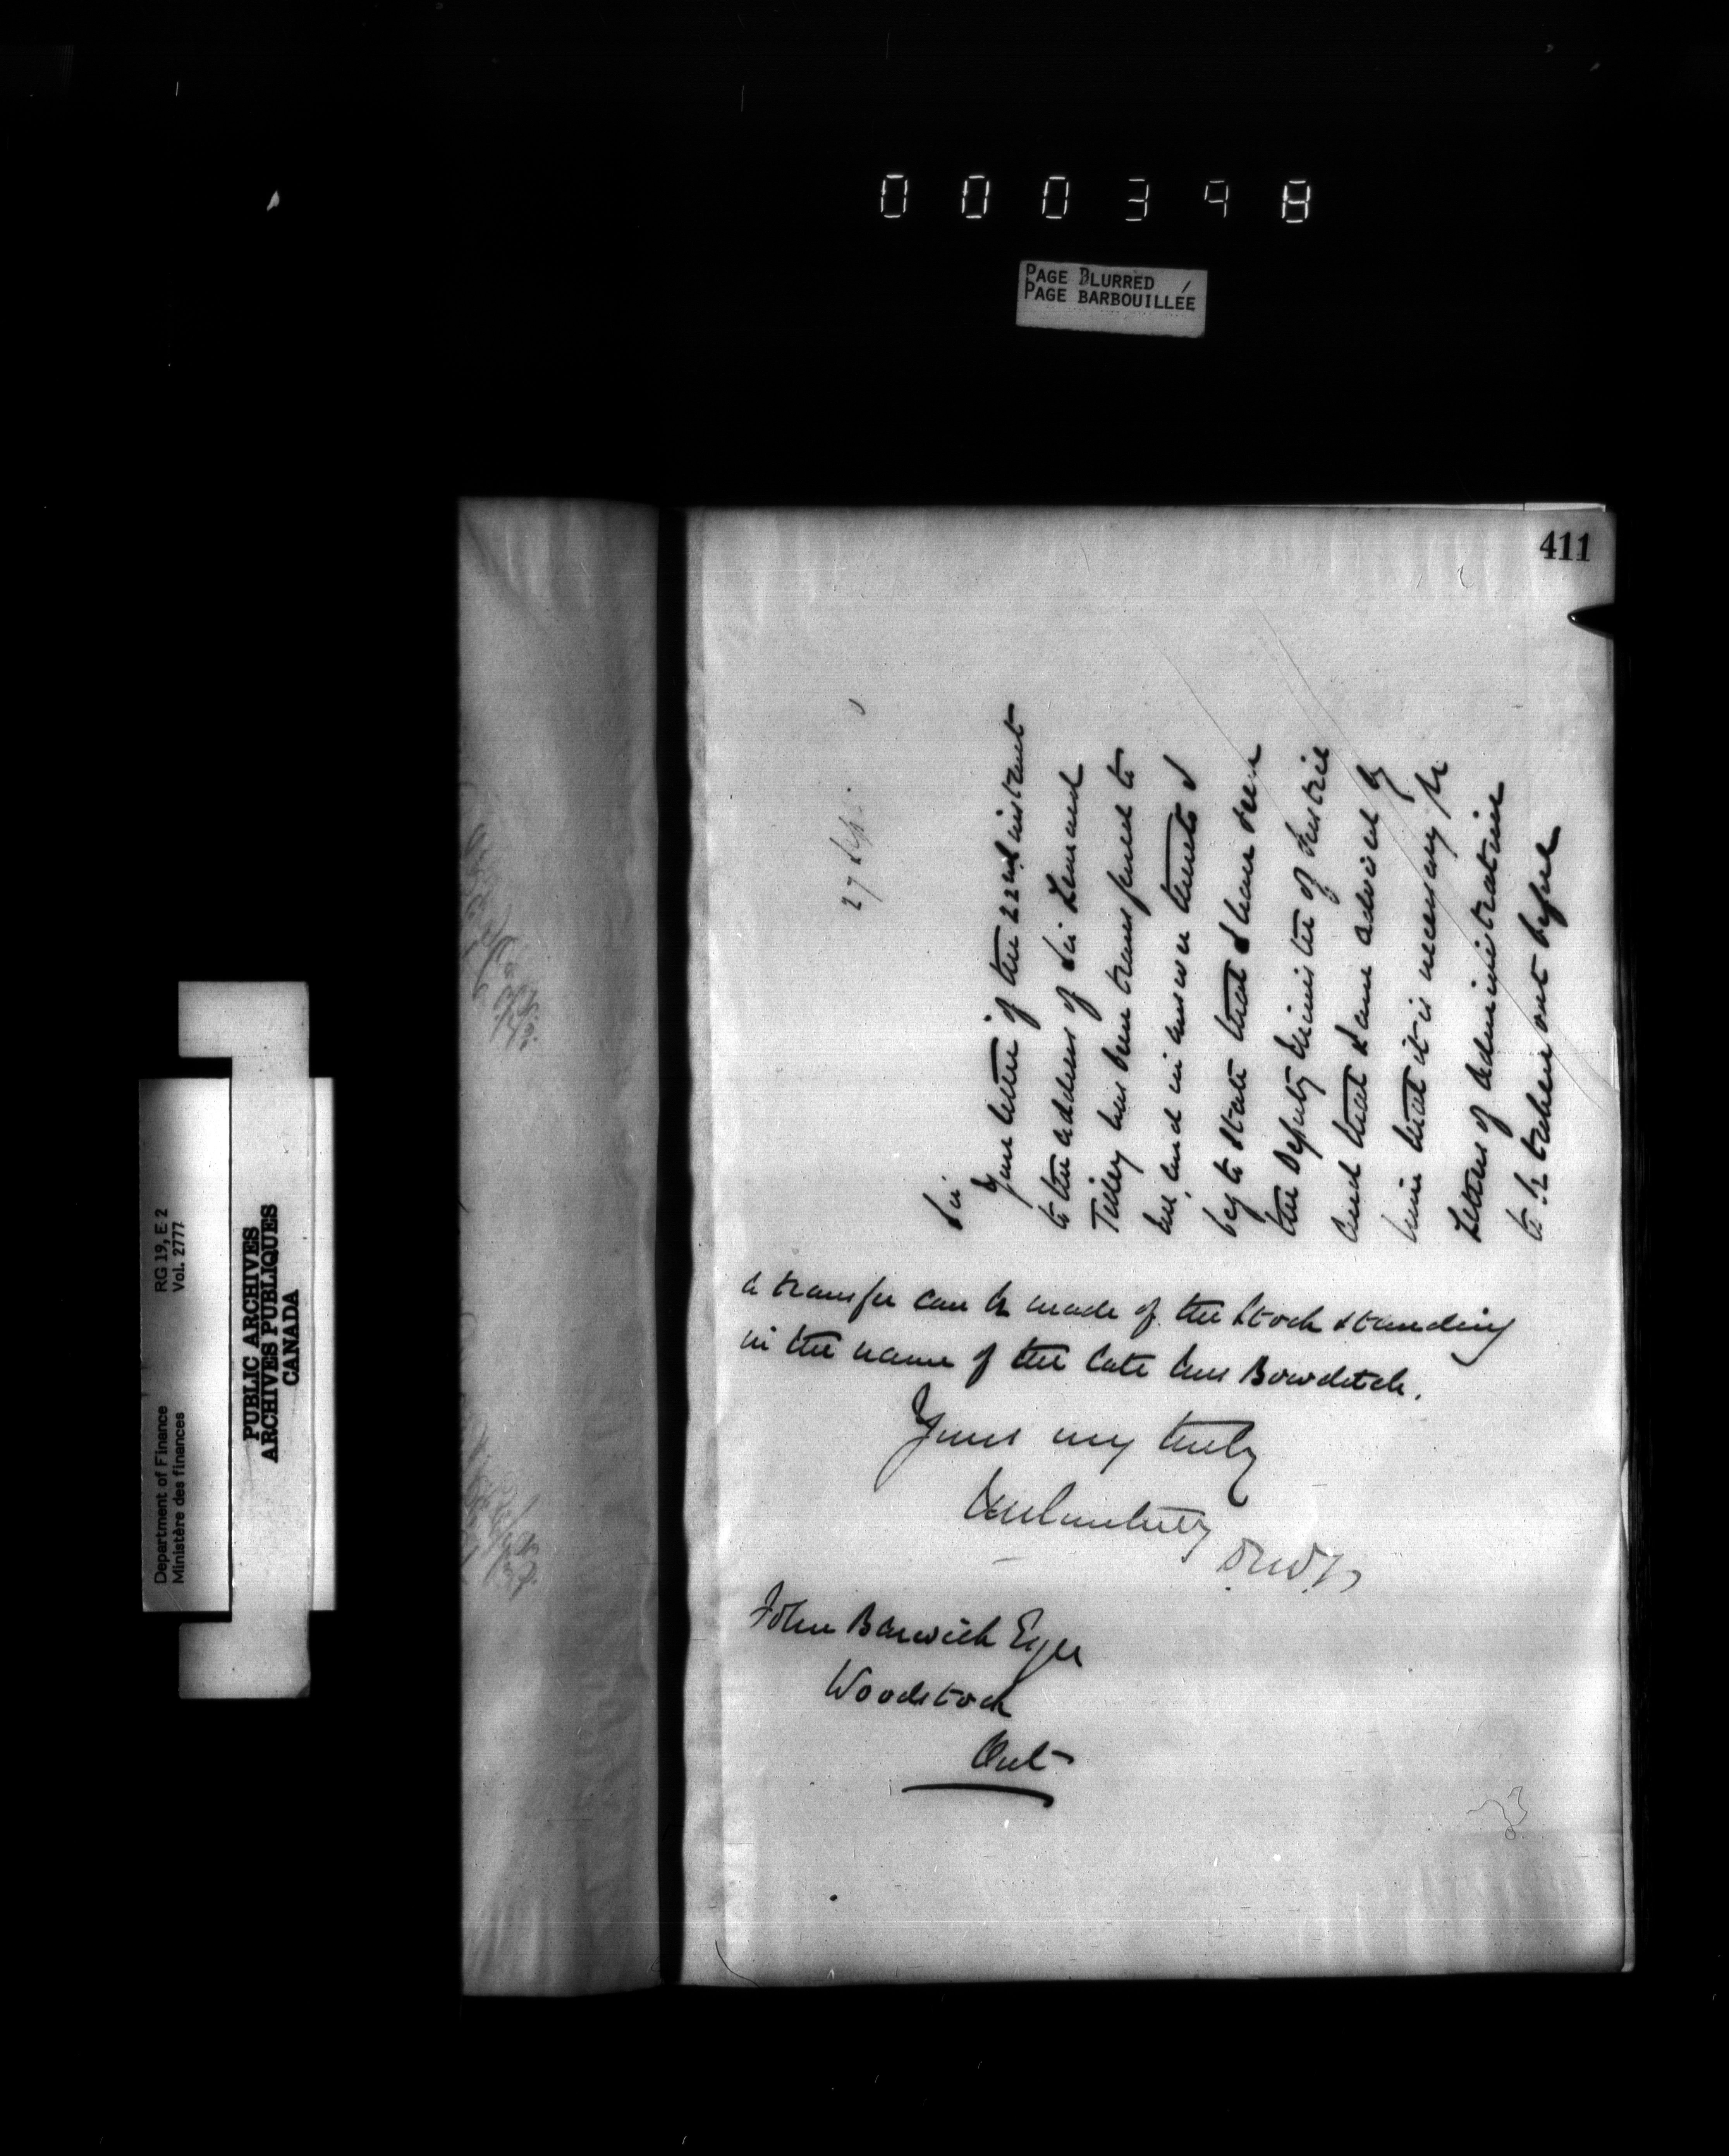 000398
PAGE BLURRED
PAGE BARBOUILLÉE
411
27 Sep.
Sir
Your letter of the 22nd instant
to the address of Sir Leonard
Tilley has been transferred to
me, and in answer thereto I
beg to state that I have seen
the Deputy Minister of Justice
and that I am advised by
him that it is necessary for
Letters of Administration
to be taken out before
a transfer can be made of the Stock standing
in the name of the late Mrs Bowditch.
Yours very truly
John Barwick Esqre
Woodstock
Ont
Department of Finance RG 19, E 2
Ministère des finances Vol. 2777
PUBLIC ARCHIVES
ARCHIVES PUBLIQUES
CANADA